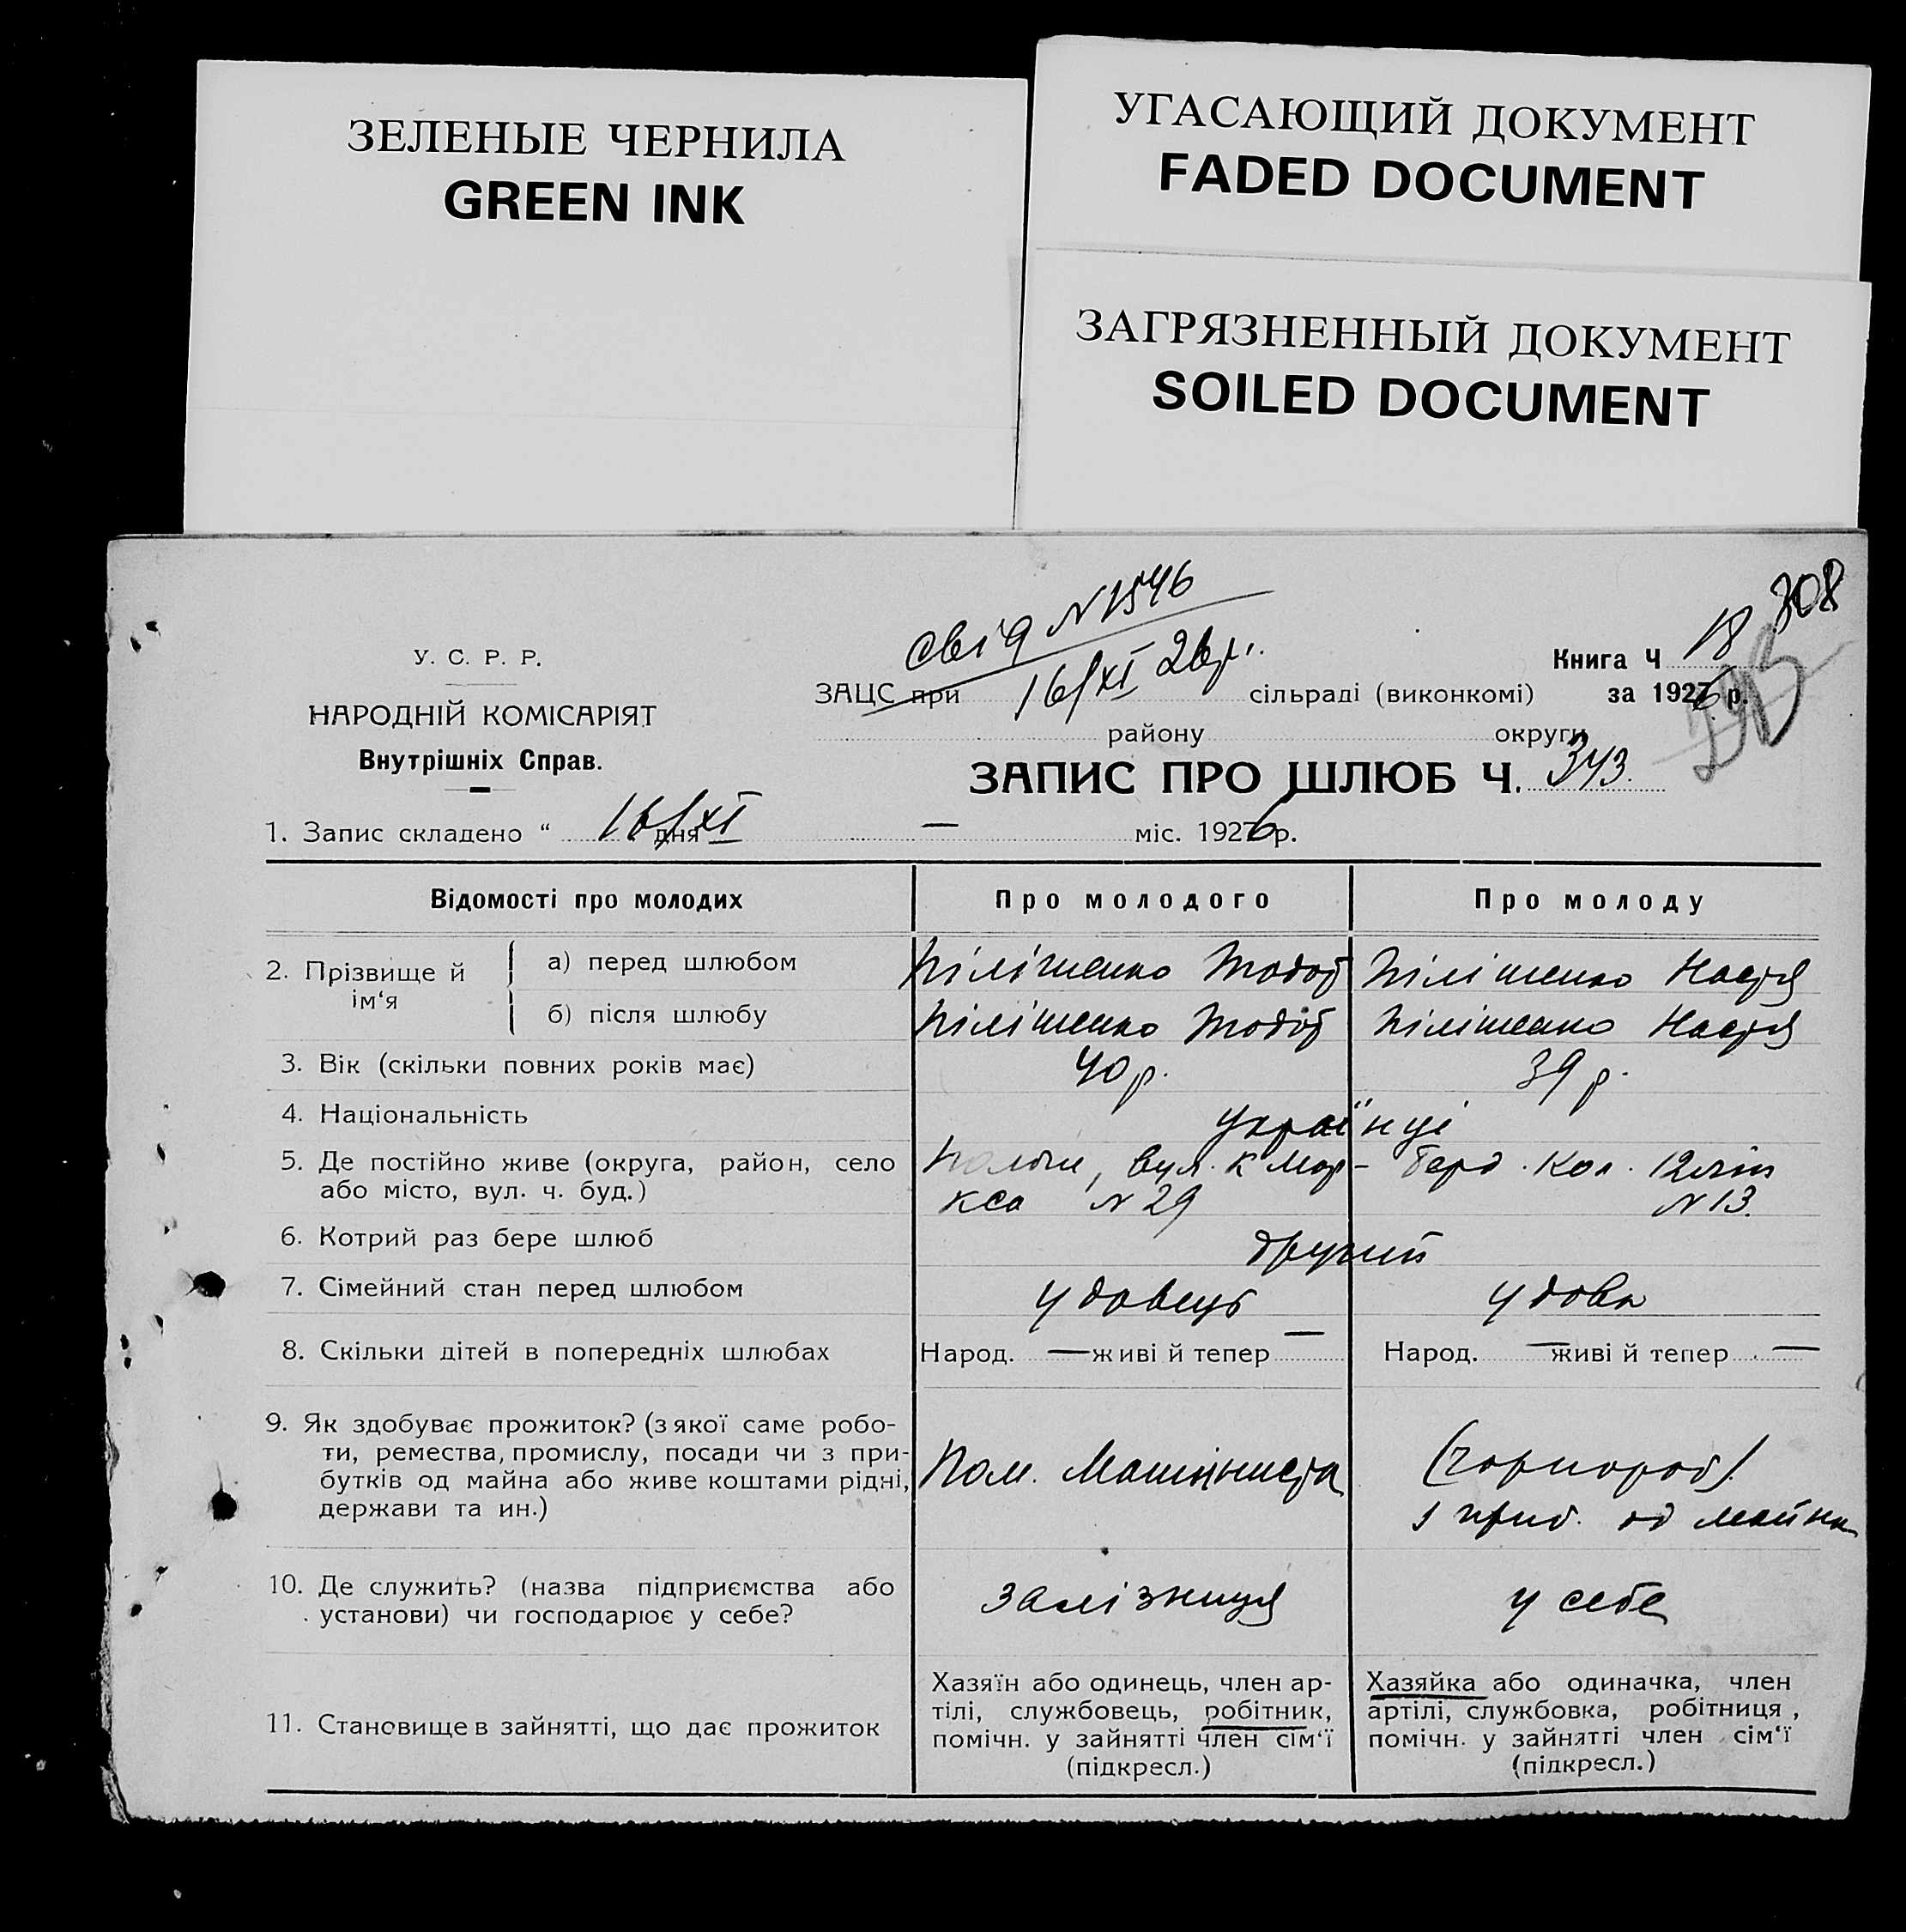 ЗЕЛЕНЫЕ ЧЕРНИЛА
GREEN INK
УГАСАЮЩИЙ ДОКУМЕНТ
FADED DOCUMENT
ЗАГРЯЗНЕННЫЙ ДОКУМЕНТ
SOILED DOCUMENT
308
свід N 1546
16/XI 26 р.
У. С. Р. Р.
НАРОДНІЙ КОМІСАРІЯТ
Внутрішніх Справ.
Книга Ч 18
ЗАЦС при сільраді (виконкомі) за 1926 р.
району округи
ЗАПИС ПРО ШЛЮБ Ч. 343.
1. Запис складено “ 16/XI дня — міс. 1926 р.
Відомості про молодих Про молодого Про молоду
2. Прізвище й ім‘я
а) перед шлюбом Піліпенко Піліпенко Настя
б) після шлюбу Піліпенко Піліпенко Настя
3. Вік (скільки повних років має) 40 р. 39 р.
4. Національність українці
5. Де постійно живе (округа, район, село вул. К Мар- Кол.
або місто, вул. ч. буд.) кса N 29 N 13.
6. Котрий раз бере шлюб другий
7. Сімейний стан перед шлюбом удовець удова
8. Скільки дітей в попередніх шлюбах Народ. — живі й тепер — Народ. — живі й тепер —
9. Як здобуває прожиток? (з якої саме робо-
ти, ремества, промислу, посади чи з при-
бутків од майна або живе коштами рідні,
держави та ин.)
Пом. Машініста
(чорнороб).
з приб. од майна
10. Де служить? (назва підприємства або
установи) чи господарює у себе?
залізниця
у себе
11. Становище в зайнятті, що дає прожиток
Хазяїн або одинець, член ар-
тілі, службовець, робітник,
помічн. у зайнятті член сім‘ї
(підкресл.)
Хазяйка або одиначка, член
артілі, службовка, робітниця,
помічн. у зайнятті член сім‘ї
(підкресл.)